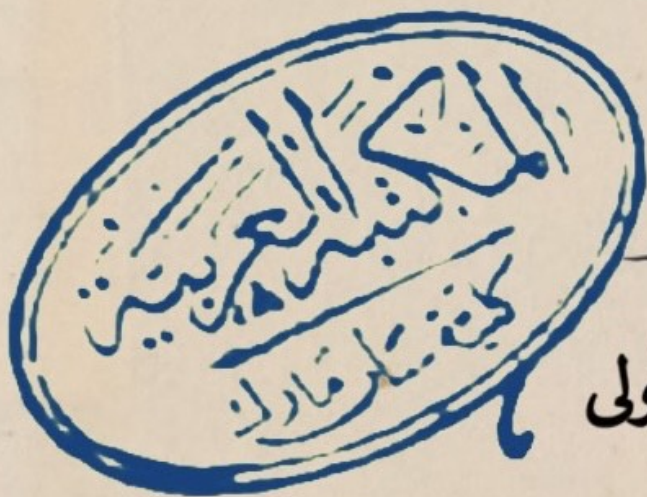 المكتبة العربية
كلية سان مارك
ولى